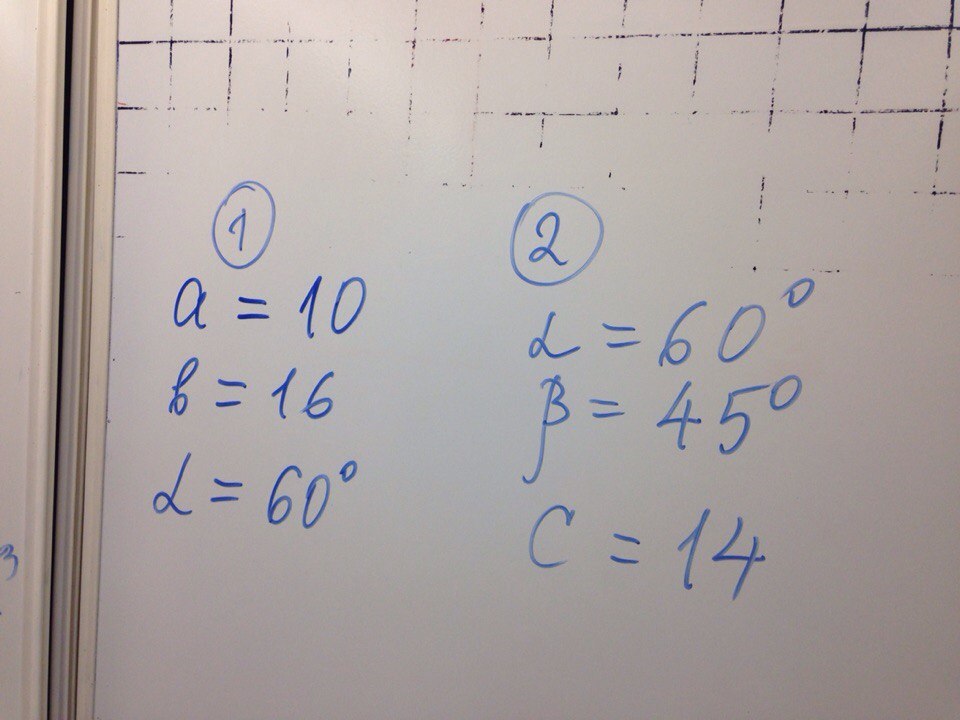 1
a = 10
в = 16
α = 60°
2
α = 60°
β = 45°
C = 14